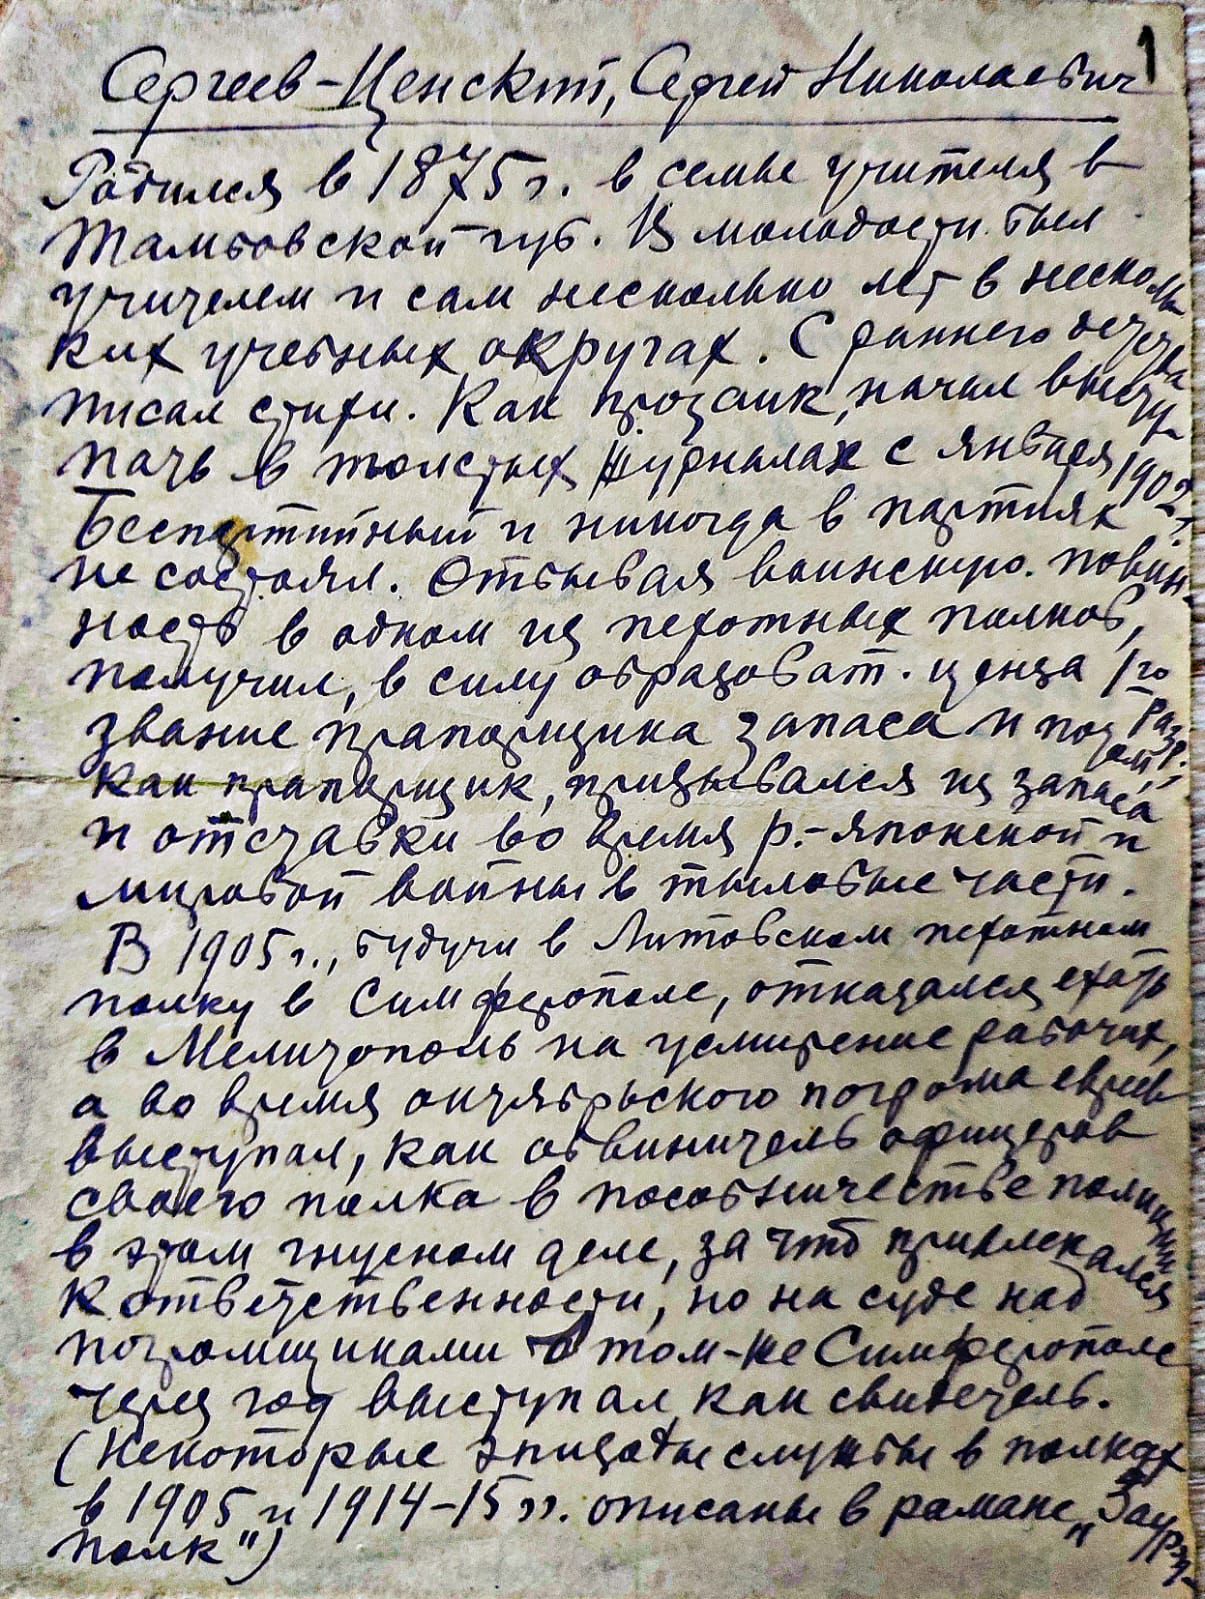 1
Сергеев-Ценский, Сергей Николаевич
Родился в 1875 г. в семье учителя в
Тамбовской губ. В молодости был
учителем и сам несколько лет в несколь
ких учебных округах. С раннего детства
писал стихи. Как прозаик, начал высту-
пать в толстых журналах с января 1902 г.
Беспартийный и никогда в партиях
не состоял. Отбывая воинскую повин-
ность в одном из пехотных полков,
получил, в силу образоват. ценза 1го разр.,
звание прапорщика запаса и потом,
как прапорщик, призывался из запаса
и отставки во время р.-японской и
мировой войны в тыловые части.
В 1905 г., будучи в Литовском пехотном
полку в Симферополе, отказался ехать
в Мелитополь на усмирение рабочих,
а во время октябрьского погрома евреев
выступал, как обвинитель офицеров
своего полка в пособничестве полиции
в этом гнусном деле, за что привлекался
к ответственности, но на суде над
погромщиками в том-же Симферополе
через год выступал как свидетель.
(Некоторые эпизоды службы в полках
в 1905 и 1914-15 гг. описаны в романе „Зауряд-
полк")